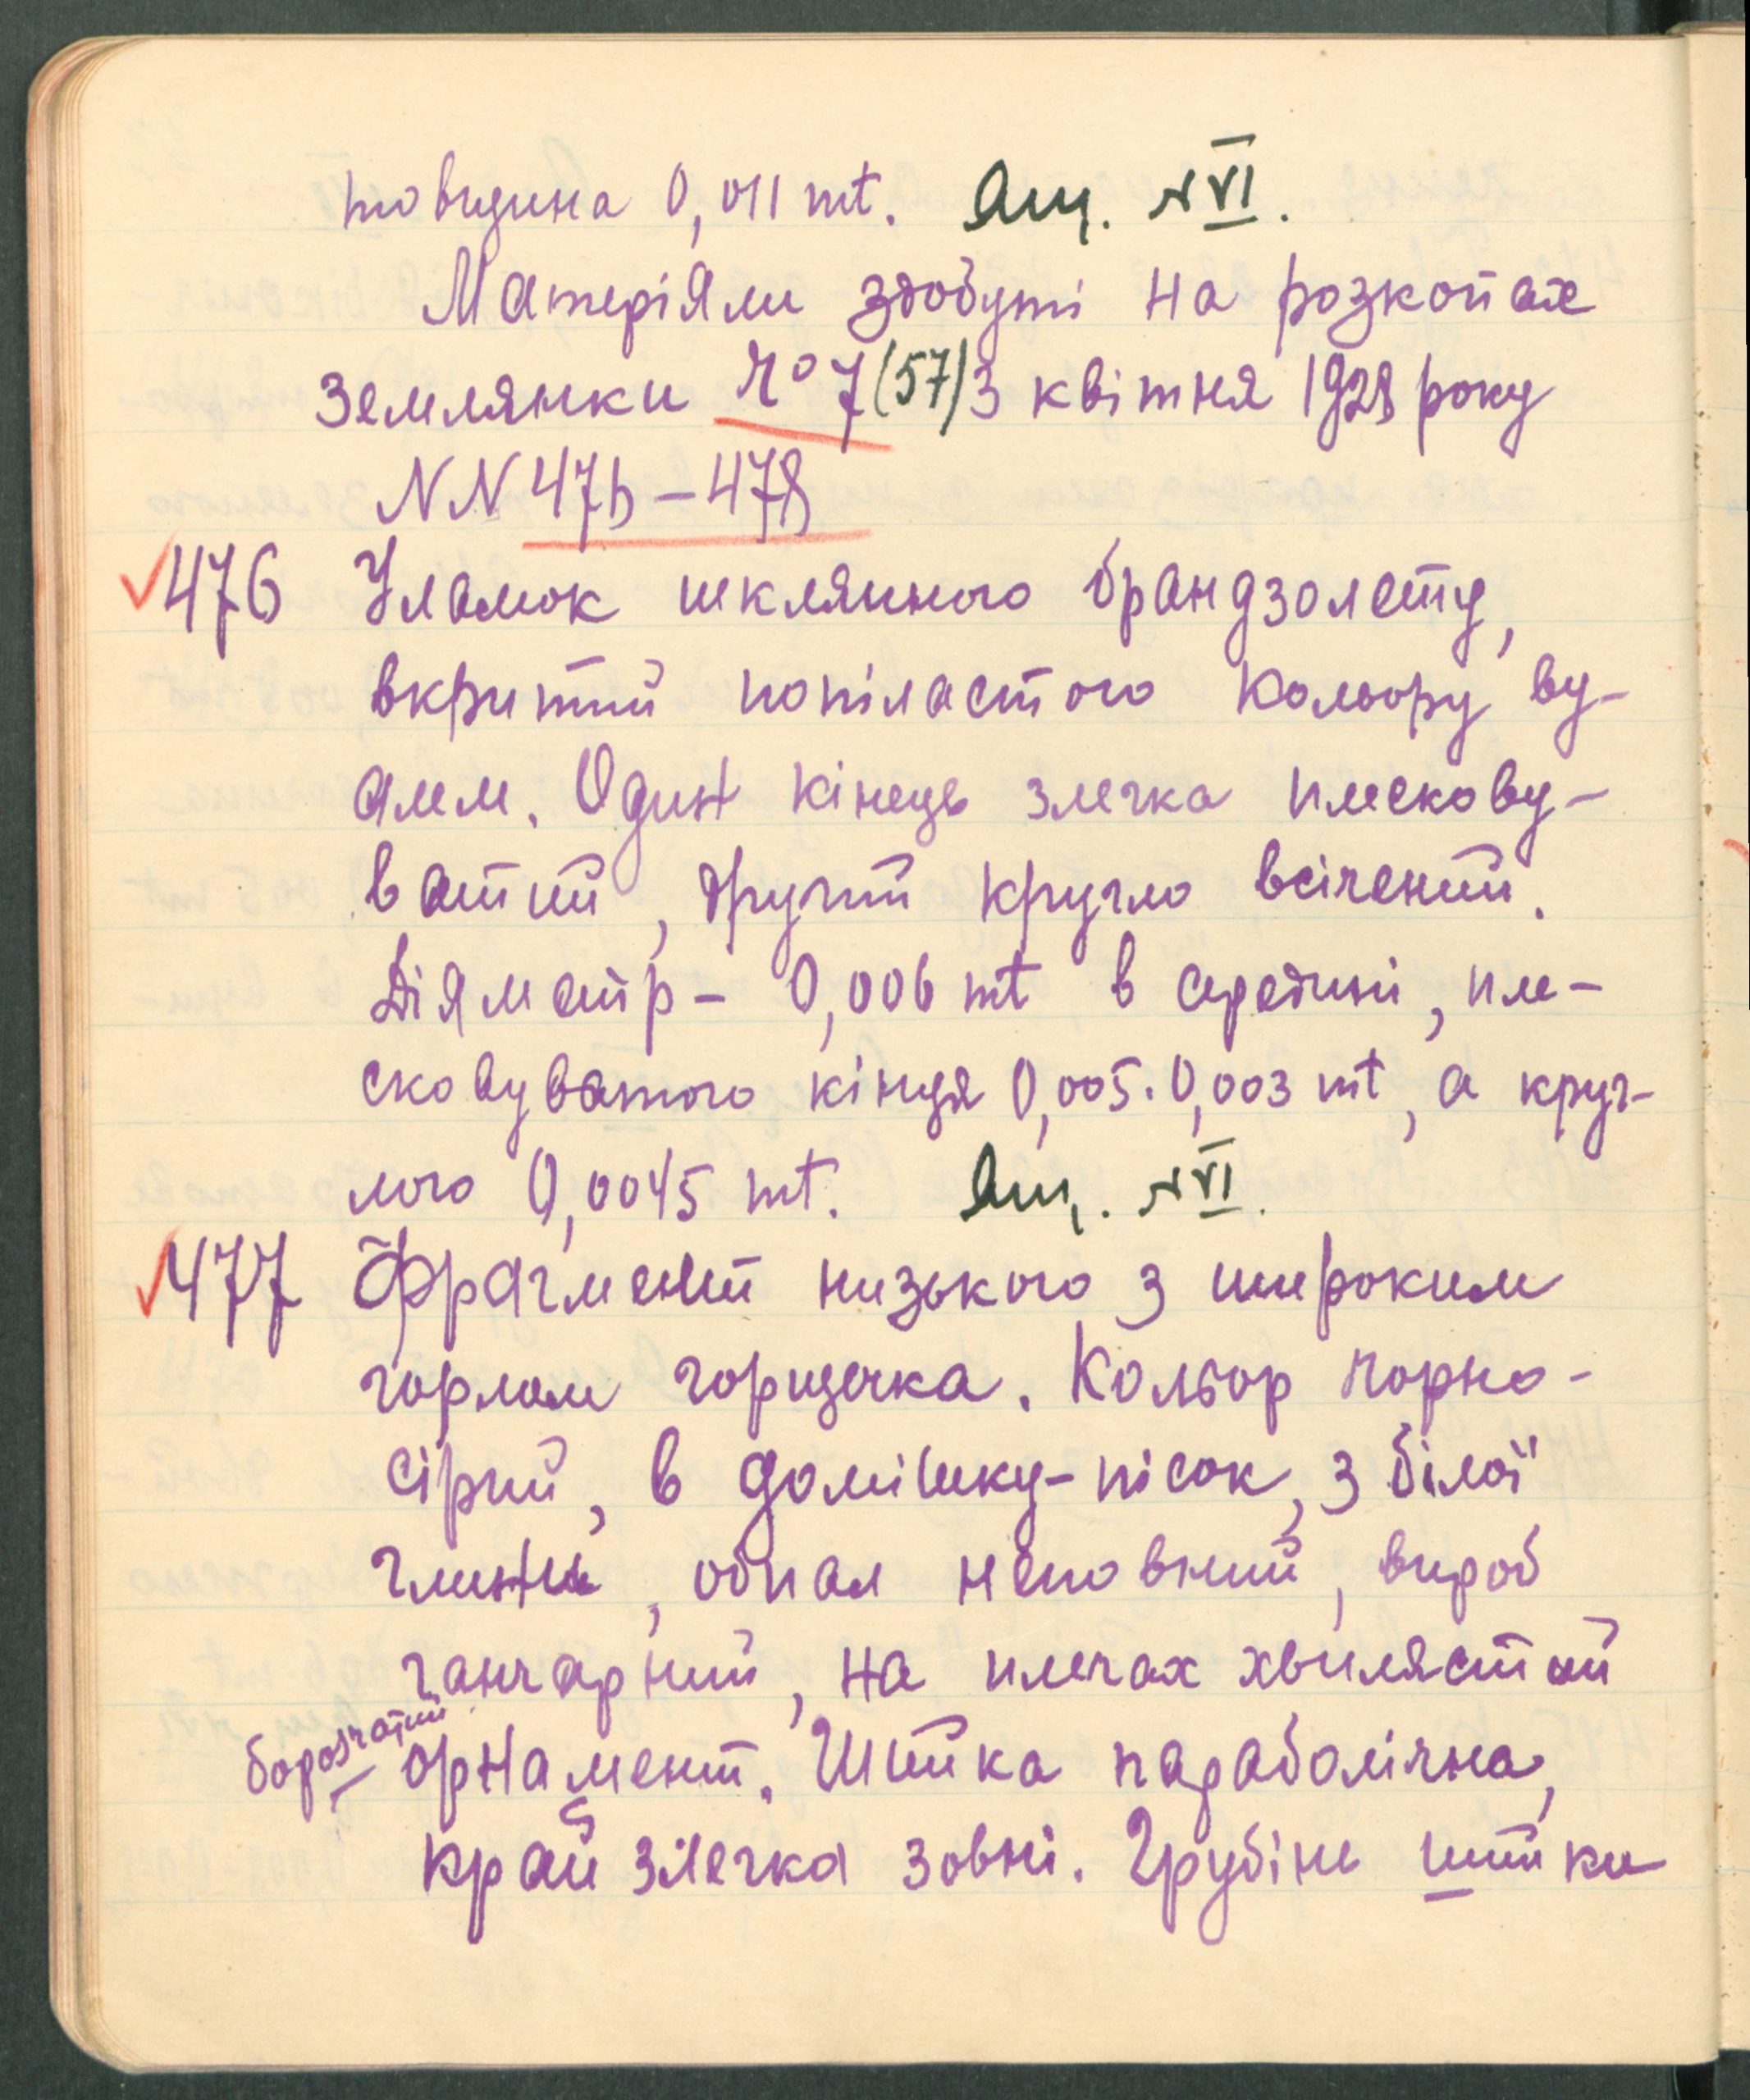 товщина 0,011 mt. Ящ. №VI.
Матеріяли здобуті на розкопах
землянки Ч° 7 (57) 3 квітня 1928 року
NN 476 – 478
476 Уламок шклянного брандзолету,
вкритий попіластого кольору ву-
алем. Один кінець злегка плескову-
ватий, другий кругло всічений.
Діяметр – 0,006 mt в середині, пле-
сковуватого кінця 0,005·0,003 mt, а круг-
лого 0,0045 mt. Ящ. №VI.
477 Фрагмент низького з широким
горлом горщечка. Кольор чорно-
сірий, в домішку – пісок, з білої
глини, обпал неповний, вироб
ганчарний, на плечах хвилястий
борозчатий орнамент. Шийка параболічна,
край злегка зовні. Грубінь шийки